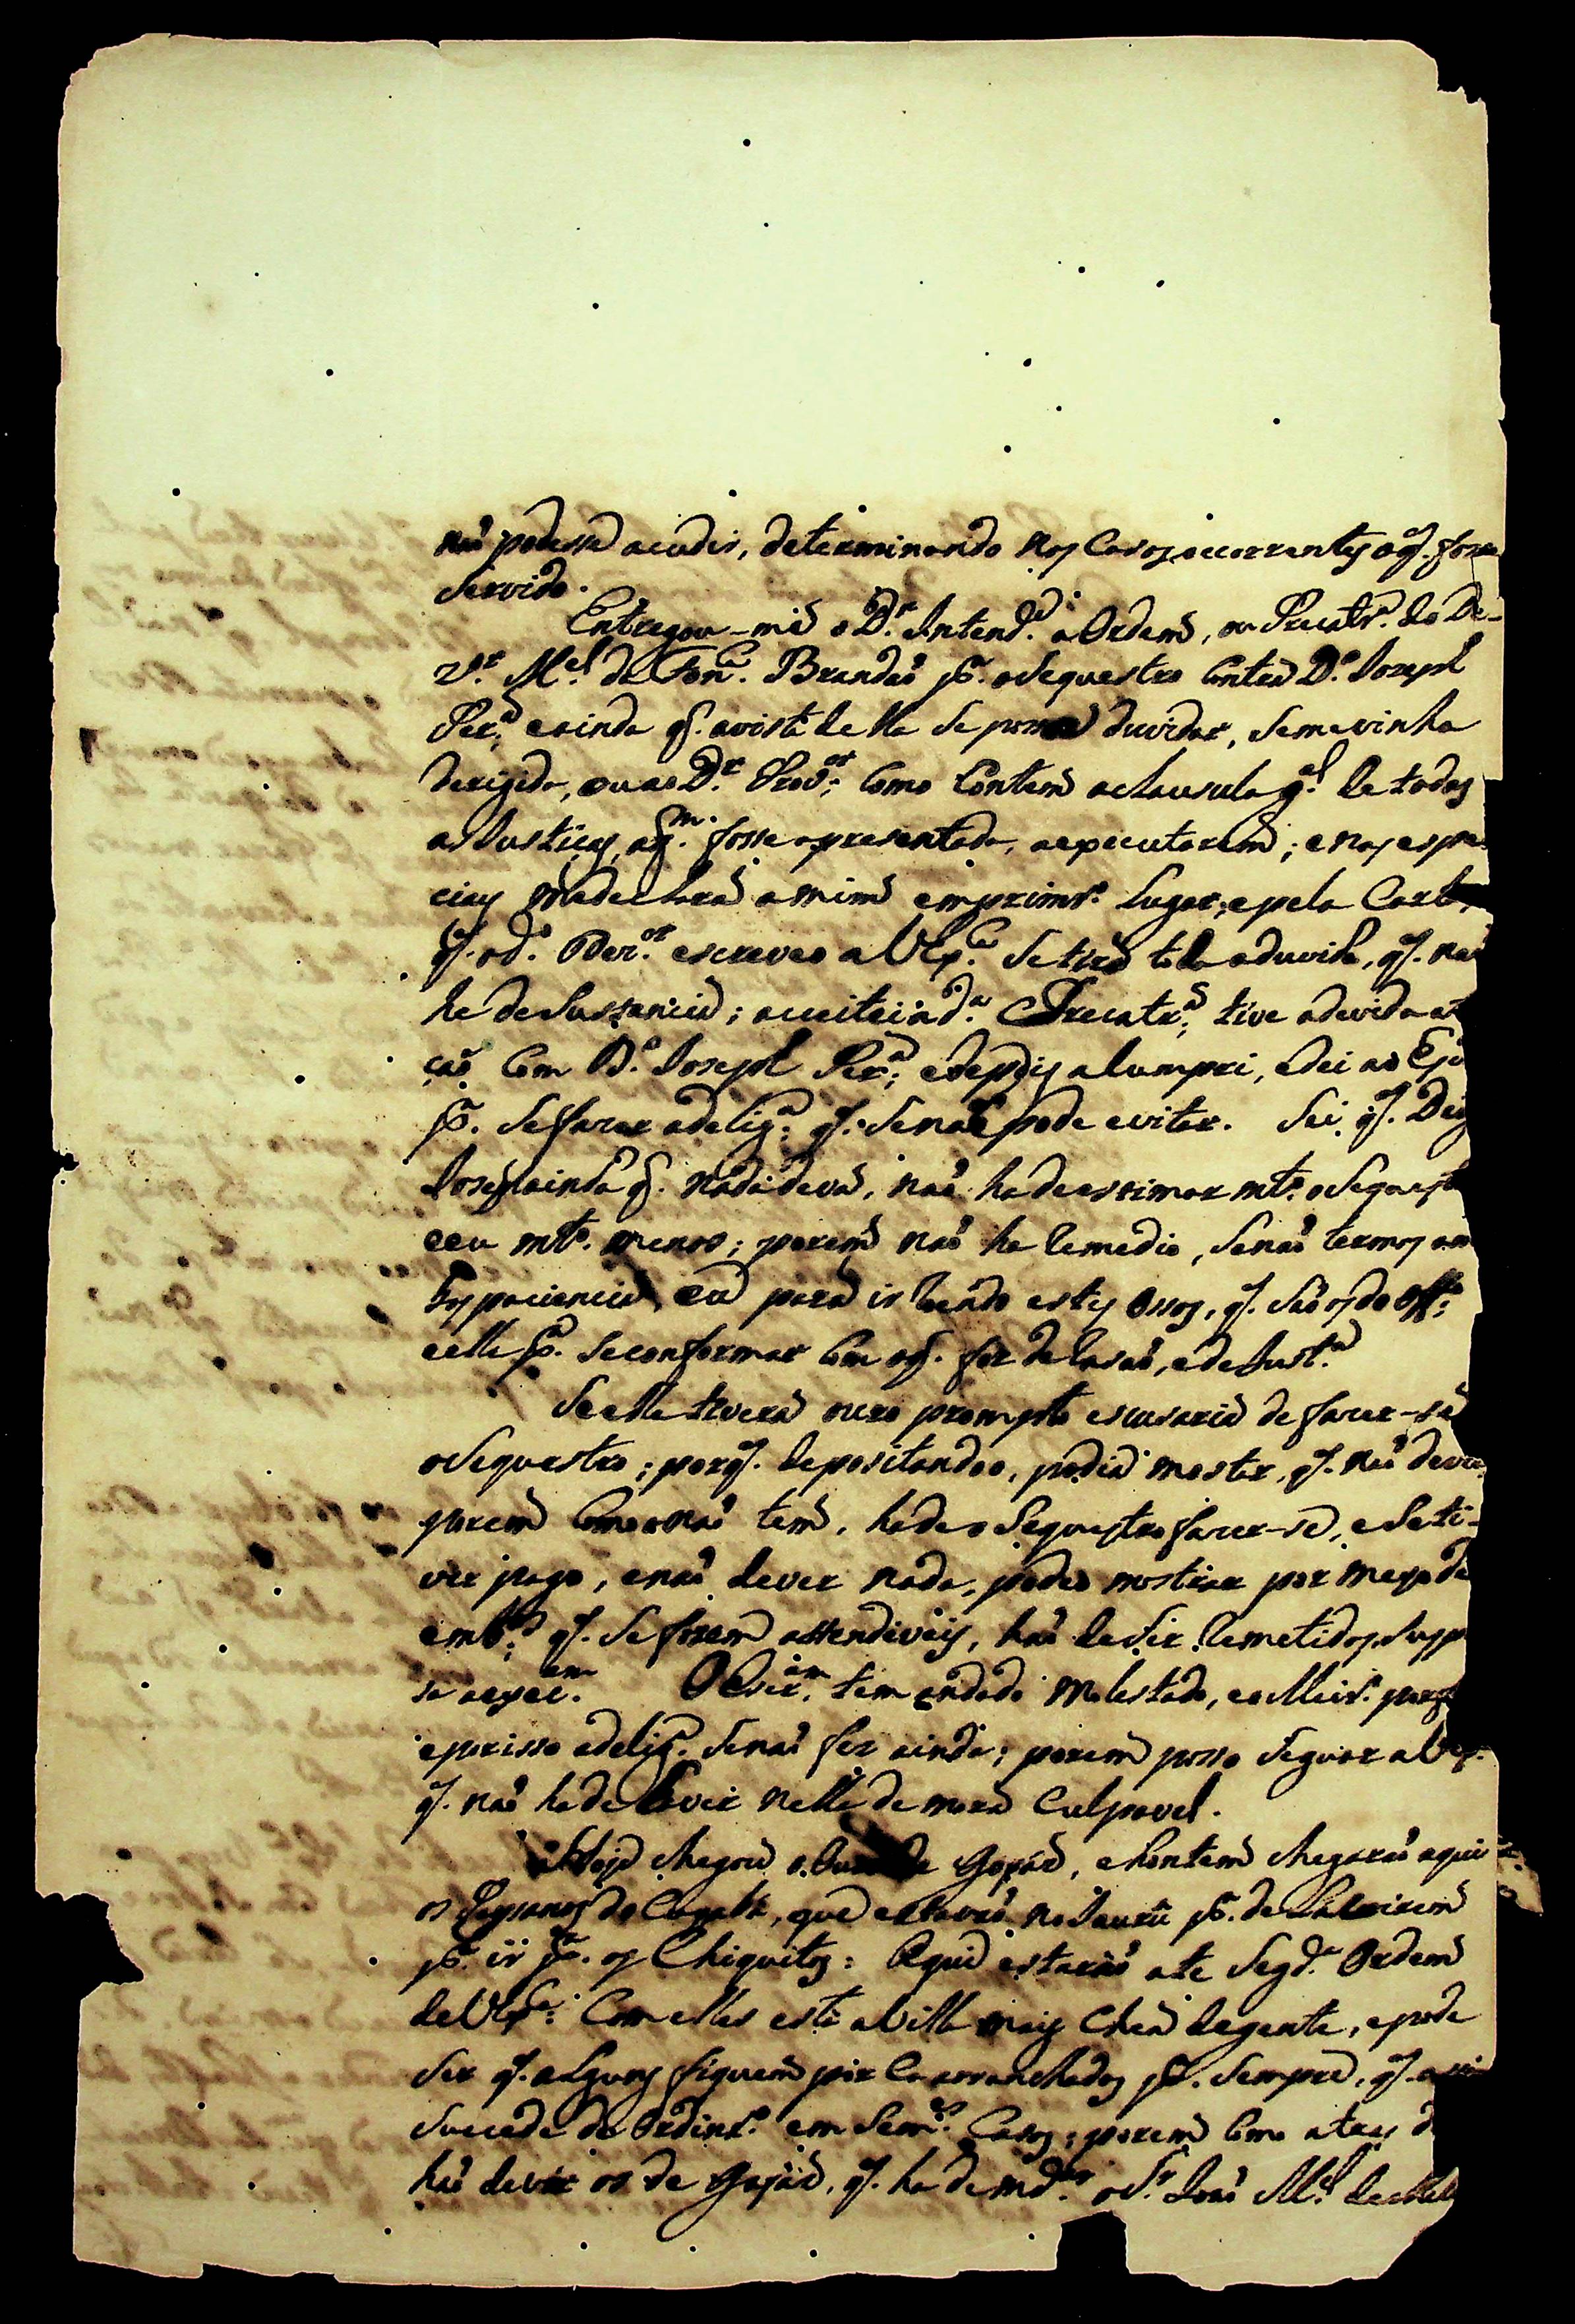 naõ podesse acudir, determinando nos Casos occorrentes o q̃. fosse
Servido.
Entregou-me o D.r Intend.e a Ordem, ou Precatr.a do De-
z.r M.el da Fon.ca Brandaõ p.a o Sequestro contra D.s Joseph
Per.a, e ainda q̃. a vista della se possa duvidar, se me vinha
derigida, ou ao D.r Prov.or; como contem a clausula g.al de todas
as Justiças, a q.m fosse apresentada, a executarem; e nas espe
cias me declara a mim em primr.o lugar; e pela Carta,
q̃. o d.o Dez.or escreveo a V Ex.ca se tira toda a duvida, q̃. naõ
he de sustancia; acceitei a d.a Precatr.a, tive a devida at
çaõ com D.s Joseph Per.a; e depois a cumpri, e dei ao
p.a se fazer a delig.a q̃. se naõ pode evitar. Sei q̃. D.os
Joseph ainda q̃. nada deva, naõ ha de estimar mt.o o Sequest
e eu mt.o menos; porem naõ ha remedio, senaõ termos am
bos paciencia, eu para ir roendo estes ossos, q̃. saõ os do Off.o;
e elle p.a se conformar com o q̃. for de rasaõ, e de Just.a
Se elle tivera ouro prompto escusaria de fazer-se
o Sequestro; porq̃. depositandoo, podia mostar, q̃. naõ devia
porem como o naõ tem, ha de o Sequestro fazer-se, e se ti-
ver pago, e naõ dever nada, poderá mostrar por meyo de
emb.os q̃. se forem attendiveis, haõ de ser remetidos, susp
sa a exec.am O Escr.am tem andado molestado, e o Meir.o
e por isso a delig.a se naõ fez ainda; porem posso segurar a V Ex.
q̃. naõ ha de haver nelle demora culpavel.
Hoje chegou o Goyaz, e hontem chegaraõ aqui
os Paysanos do Cuyabá, que estavaõ no Jaurú p.a de la virem
p.a ir p.a os Chiquitos: Aqui estaraõ ate Segd.a Ordem
de V Ex.ca: Com elles está a Villa mais chea de gente, e pode
ser q̃. alguns fiquem por ca arranchados p.a sempre, q̃. assim
succede de Ordinr.o em sem.es Casos; porem como atras d
haõ de vir os de Goyaz, q̃. ha de md.ar o S.r Joaõ M.el de Mell